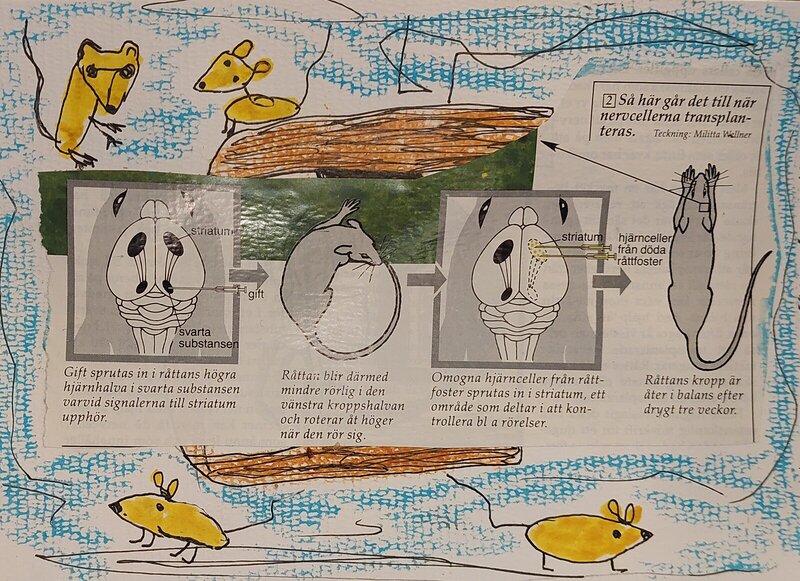 2 Så här går det till när
nervcellerna transplan-
teras. Teckning: Militta Wellner
striatum
gift
svarta
substansen
striatum
hjärnceller
från döda
råttfoster
Gift sprutas in i råttans högra
hjärnhalva i svarta substansen
varvid signalerna till striatum
upphör.
Råttan blir därmed
mindre rörlig i den
vänstra kroppshalvan
och roterar åt höger
när den rör sig.
Omogna hjärnceller från rått-
foster sprutas in i striatum, ett
område som deltar i att kon-
trollera bl a rörelser.
Råttans kropp är
åter i balans efter
drygt tre veckor.